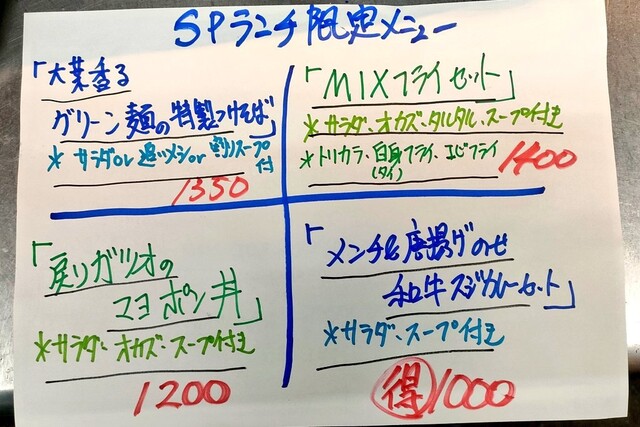 SPランチ限定メニュー
「大葉香る
グリーン麺の特製つけそば」
※サラダor追いメシor割りスープ付
1350
「MIXフライセット」
※サラダ、オカズ、タルタル、スープ付き
※トリカラ、白身フライ、エビフライ
(タイ)
1400
「戻りガツオの
マヨポン丼」
※サラダ、オカズ、スープ付き
1200
「メンチ&唐揚げのせ
和牛スジカレーセット」
※サラダ、スープ付き
得 1000